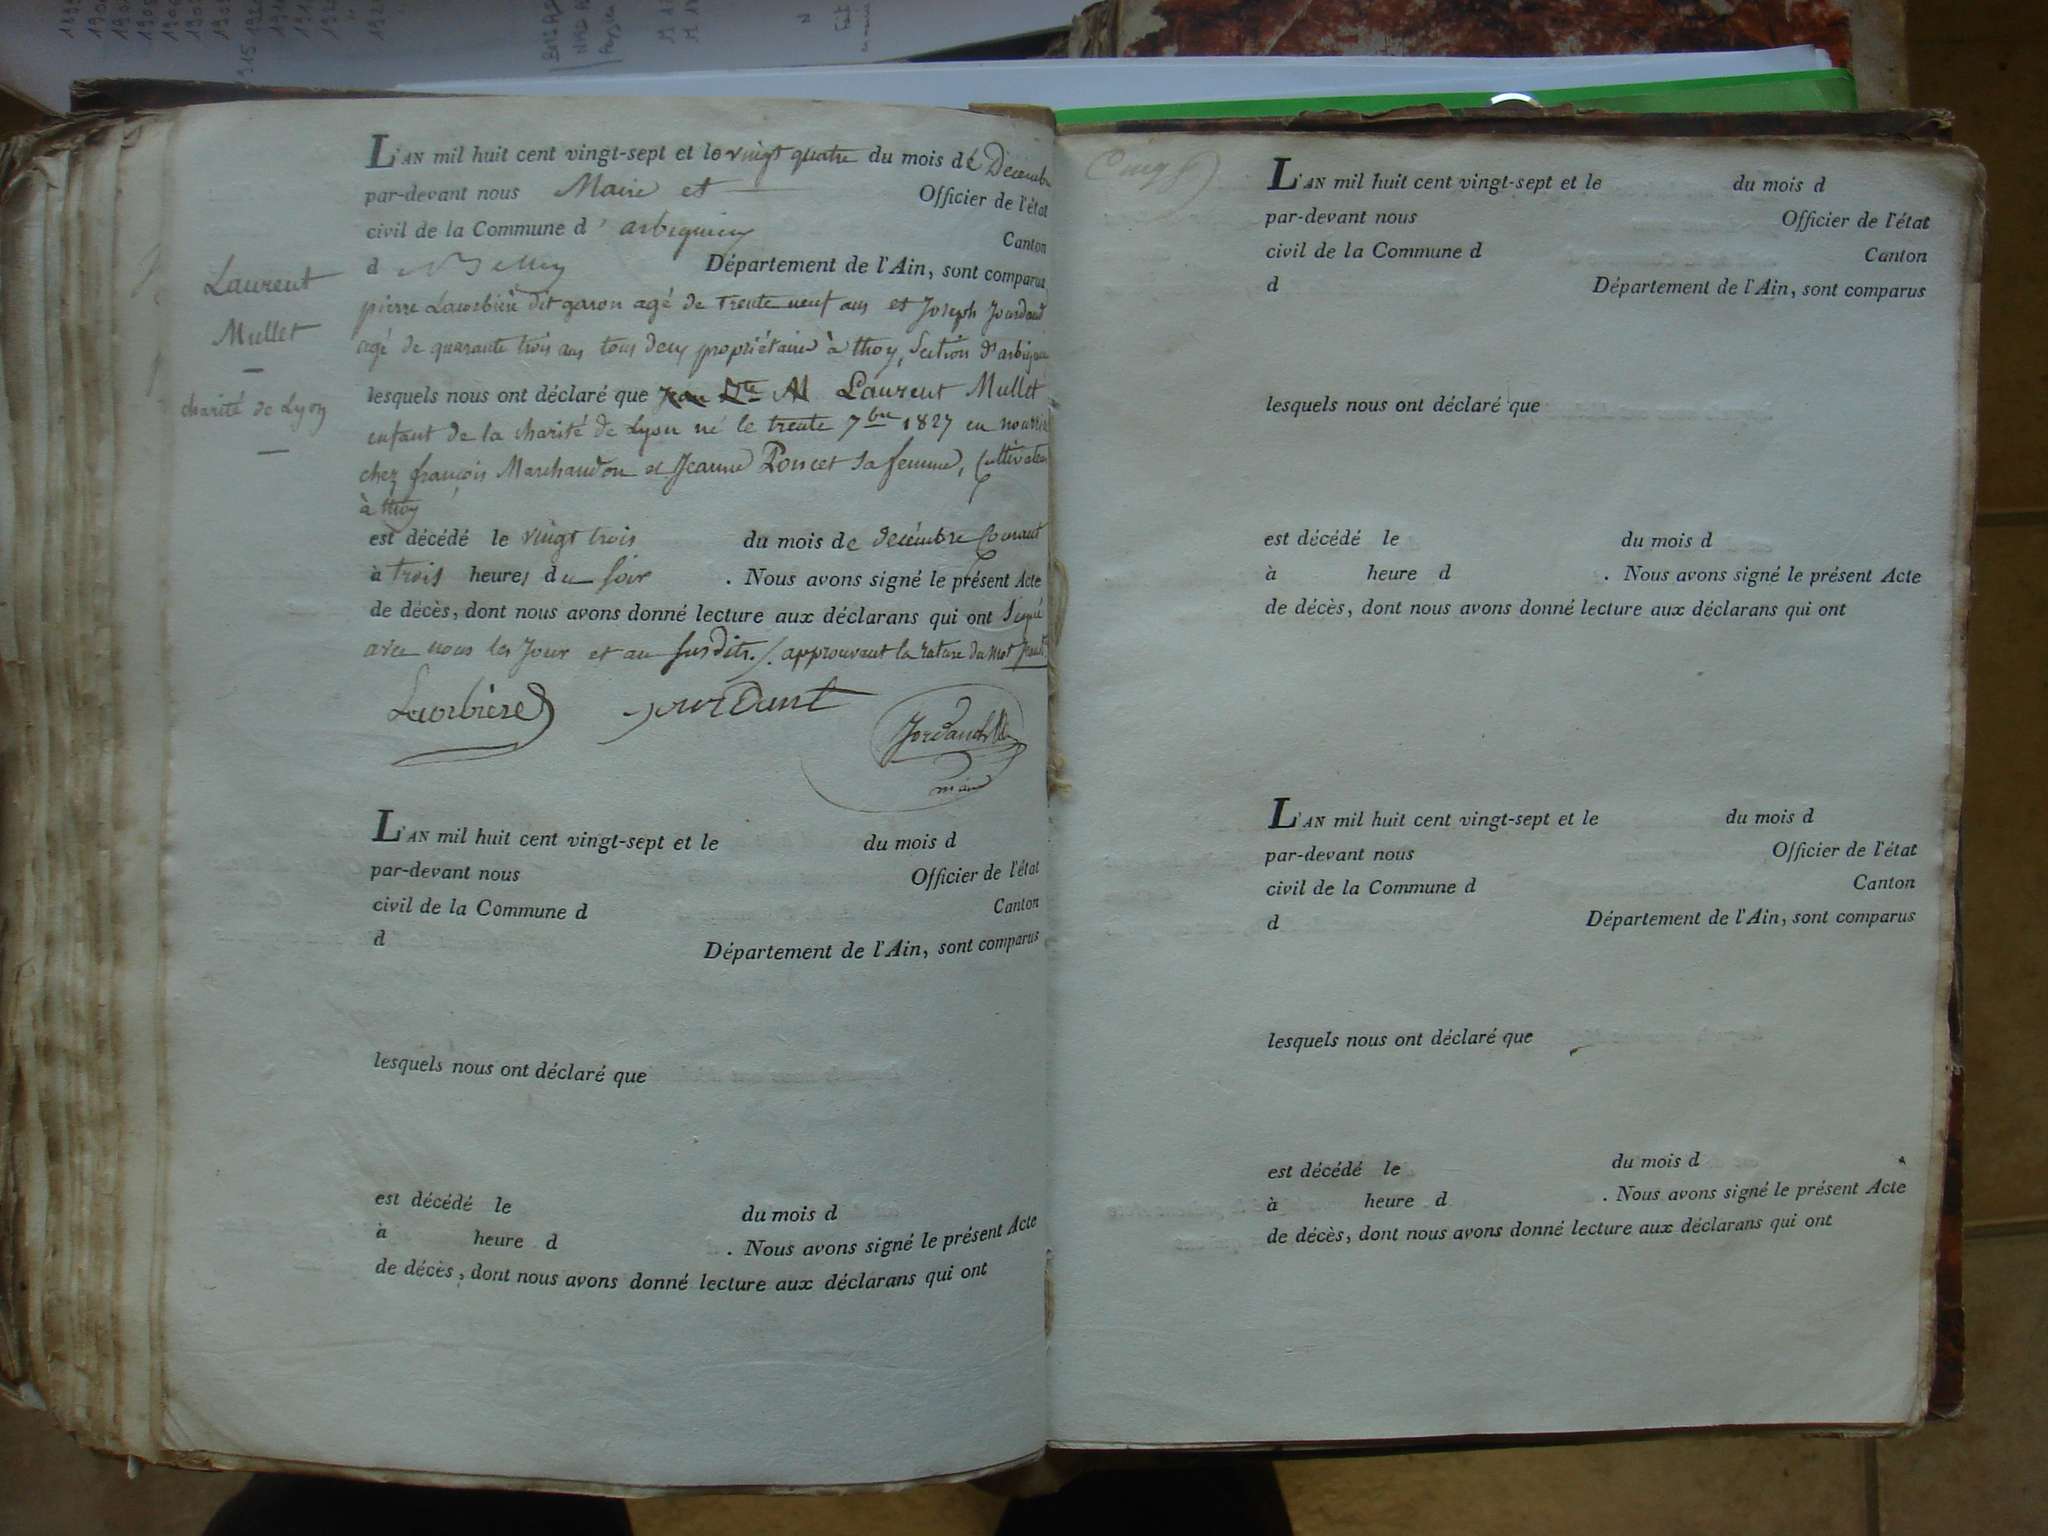 Laurent
Mullet
charité de Lyon
L'AN mil huit cent vingt-sept et le vingt quatre du mois de Décembre
par-devant nous Maire et Officier de l'état
civil de la Commune d'arbignieu Canton
d Belley Département de l'Ain, sont comparus
pierre Lavorbiere dit garon agé de trente neuf ans et Joseph Jourdant
agé de quarante trois ans tous deux propriétaires à thoy, Section d'arbignieu
lesquels nous ont déclaré que Jean Bte M Laurent Mullet
enfant de la charité de Lyon né le trente 7bre 1827 en nourrice
chez françois Marchandon et Jeanne Poncet sa femme, Cultivateurs
à thoy
est décédé le vingt trois du mois de décembre Courant
à trois heures du soir . Nous avons signé le présent Acte
de décès, dont nous avons donné lecture aux déclarans qui ont signé
avec nous les Jour et an susdits ./. approuvant la rature du mot
Lavorbiere Jourdant
maire
L'AN mil huit cent vingt-sept et le du mois d
par-devant nous Officier de l'état
civil de la Commune d Canton
d Département de l'Ain, sont comparus
lesquels nous ont déclaré que
est décédé le du mois d
à heure d . Nous avons signé le présent Acte
de décès, dont nous avons donné lecture aux déclarans qui ont
L'AN mil huit cent vingt-sept et le du mois d
par-devant nous Officier de l'état
civil de la Commune d Canton
d Département de l'Ain, sont comparus
lesquels nous ont déclaré que
est décédé le du mois d
à heure d . Nous avons signé le présent Acte
de décès, dont nous avons donné lecture aux déclarans qui ont
L'AN mil huit cent vingt-sept et le du mois d
par-devant nous Officier de l'état
civil de la Commune d Canton
d Département de l'Ain, sont comparus
lesquels nous ont déclaré que
est décédé le du mois d
à heure d . Nous avons signé le présent Acte
de décès, dont nous avons donné lecture aux déclarans qui ont